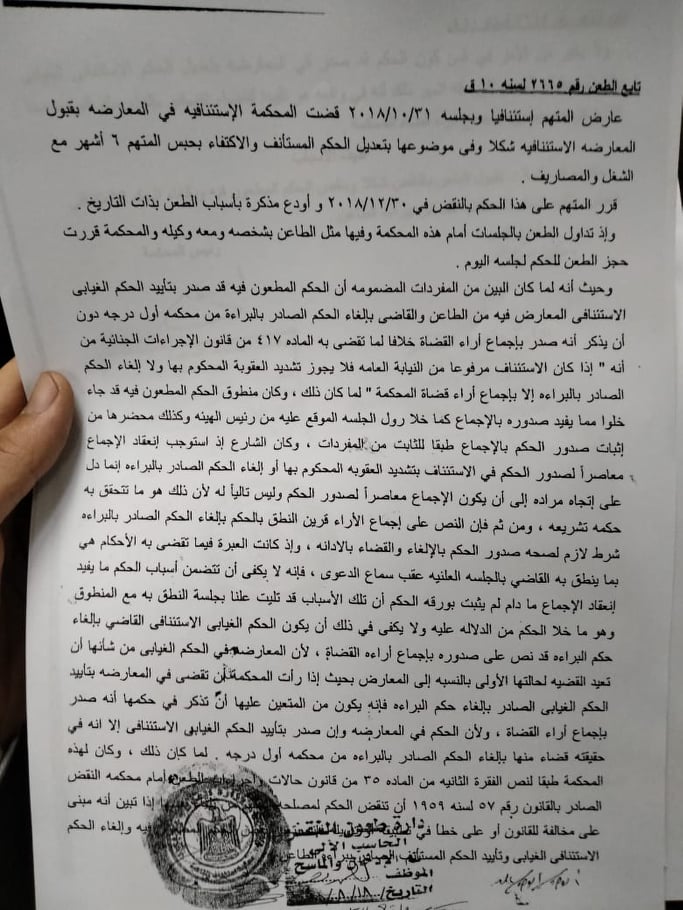 تابع الطعن رقم ٢٦٦٥ لسنه ١٠ ق
عارض المتهم إستئنافيا وبجلسه ٢٠١٨/١٠/٣١ قضت المحكمة الإستئنافيه في المعارضه بقبول
المعارضه الاستئنافيه شكلا وفى موضوعها بتعديل الحكم المستأنف والاكتفاء بحبس المتهم ٦ أشهر مع
الشغل والمصاريف .
قرر المتهم على هذا الحكم بالنقض في ٢٠١٨/١٢/٣٠ و أودع مذكرة بأسباب الطعن بذات التاريخ .
وإذ تداول الطعن بالجلسات أمام هذه المحكمة وفيها مثل الطاعن بشخصه ومعه وكيله والمحكمة قررت
حجز الطعن للحكم لجلسه اليوم .
وحيث أنه لما كان البين من المفردات المضمومه أن الحكم المطعون فيه قد صدر بتأييد الحكم الغيابى
الاستئنافى المعارض فيه من الطاعن والقاضى بإلغاء الحكم الصادر بالبراءة من محكمه أول درجه دون
أن يذكر أنه صدر بإجماع أراء القضاة خلافا لما تقضى به الماده ٤١٧ من قانون الإجراءات الجنائية من
أنه " إذا كان الاستئناف مرفوعا من النيابة العامه فلا يجوز تشديد العقوبة المحكوم بها ولا إلغاء الحكم
الصادر بالبراءه إلا بإجماع أراء قضاة المحكمة " لما كان ذلك ، وكان منطوق الحكم المطعون فيه قد جاء
خلوا مما يفيد صدوره بالإجماع كما خلا رول الجلسه الموقع عليه من رئيس الهيئه وكذلك محضرها من
إثبات صدور الحكم بالإجماع طبقا للثابت من المفردات ، وكان الشارع إذ استوجب إنعقاد الإجماع
معاصراً لصدور الحكم في الاستئناف بتشديد العقوبه المحكوم بها أو إلغاء الحكم الصادر بالبراءه إنما دل
على إتجاه مراده إلى أن يكون الإجماع معاصراً لصدور الحكم وليس تالياً له لأن ذلك هو ما تتحقق به
حكمه تشريعه ، ومن ثم فإن النص على إجماع الأراء قرين النطق بالحكم بإلغاء الحكم الصادر بالبراءه
شرط لازم لصحه صدور الحكم بالإلغاء والقضاء بالادانه ، وإذ كانت العبرة فيما تقضى به الأحكام هي
بما ينطق به القاضي بالجلسه العلنيه عقب سماع الدعوى ، فإنه لا يكفى أن تتضمن أسباب الحكم ما يفيد
إنعقاد الإجماع ما دام لم يثبت بورقه الحكم أن تلك الأسباب قد تليت علنا بجلسة النطق به مع المنطوق
وهو ما خلا الحكم من الدلاله عليه ولا يكفى في ذلك أن يكون الحكم الغيابى الاستئنافى القاضي بإلغاء
حكم البراءه قد نص على صدوره بإجماع أراءه القضاة ، لأن المعارضه في الحكم الغيابى من شأنها أن
تعيد القضيه لحالتها الأولى بالنسبه إلى المعارض بحيث إذا رأت المحكمة أن تقضى في المعارضه بتأييد
الحكم الغيابى الصادر بإلغاء حكم البراءه فإنه يكون من المتعين عليها أن تذكر في حكمها أنه صدر
بإجماع أراء القضاة ، ولأن الحكم في المعارضه وإن صدر بتأييد الحكم الغيابى الاستئنافى إلا انه في
حقيقته قضاء منها بإلغاء الحكم الصادر بالبراءه من محكمه أول درجه . لما كان ذلك ، وكان لهذه
المحكمة طبقا لنص الفقرة الثانيه من الماده ٣٥ من قانون حالات وإجراءات الطعن أمام محكمه النقض
الصادر بالقانون رقم ٥٧ لسنه ١٩٥٩ أن تنقض الحكم لمصلحه إذا تبين أنه مبنى
على مخالفة للقانون أو على خطأ في فيه وإلغاء الحكم
الاستئنافى الغيابى وتأييد الحكم المستأنف الصادر ببراءه الطاعن
الحاسب الآلى
والماسح
الموظف
التاريخ